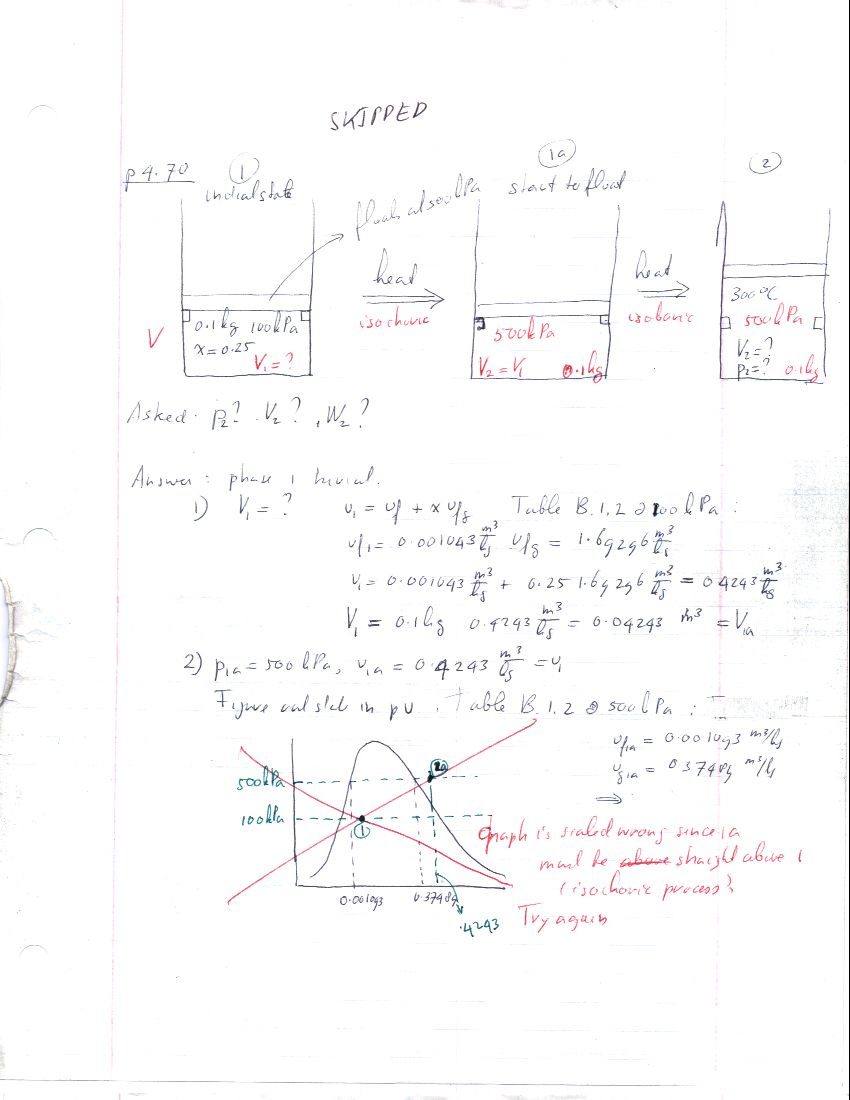 SKIPPED
p 4.70
1
initial state
floats at 500 kPa
1a
start to float
2
heat
isochoric
heat
isobaric
V
0.1 kg 100 kPa
x = 0.25
V₁ = ?
500 kPa
V₂ = V₁ 0.1 kg
300 °C
500 kPa
V₂ = ?
p₂ = ? 0.1 kg
Asked: p₂? V₂? , W₂?
Answer: phase 1 trivial.
1) V₁ = ? v₁ = vf + x vfg Table B.1.2 @ 100 kPa :
vf₁ = 0.001043 m³/kg vfg = 1.69296 m³/kg
v₁ = 0.001043 m³/kg + 0.25 1.69296 m³/kg = 0.4243 m³/kg
V₁ = 0.1 kg 0.4243 m³/kg = 0.04243 m³ = V1a
2) p1a = 500 kPa, v1a = 0.4243 m³/kg = v₁
Figure out state in pv. Table B.1.2 @ 500 kPa :
vf1a = 0.001093 m³/kg
vg1a = 0.37489 m³/kg
⇒
500 kPa
100 kPa
1
0.001093
0.37489
.4243
Graph is scaled wrong since 1a
must be above straight above 1
(isochoric process)
Try again